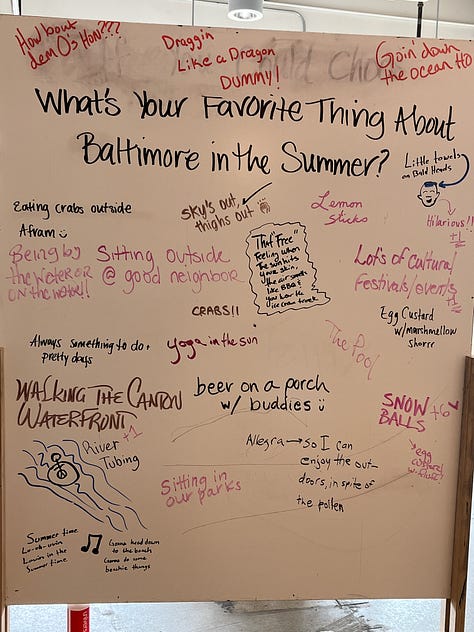 How bout
dem O's Hon???
Draggin
Like a Dragon
DUMMY!
Goin' down
the ocean HO
What's Your Favorite Thing About
Baltimore in the Summer?
Little towels
on Bald Heads
Hilarious!!
+1
Eating crabs outside
Afram
sky's out,
thighs out
Lemon
Sticks
Being by
the water or
on the water!!
Sitting outside
@ good neighbor
That "Free"
Feeling when
the sun hits
your skin,
the air smells
like BBQ &
you hear the
ice cream truck
Lots of cultural
festivals/events
+1
CRABS!!
Egg Custard
w/marshmellow
Always something to do +
pretty days
yoga in the sun
The Pool
WALKING THE CANTON
WATERFRONT
beer on a porch
w/ buddies
SNOW
BALLS
+6
egg
custard
River +1
Tubing
Allegra → so I can
enjoy the out-
doors, in spite of
the pollen
Sitting in
our parks
Summer time
Lovin in the
Summer time
Gonna head down
to the beach
Gonna do some
beachie things